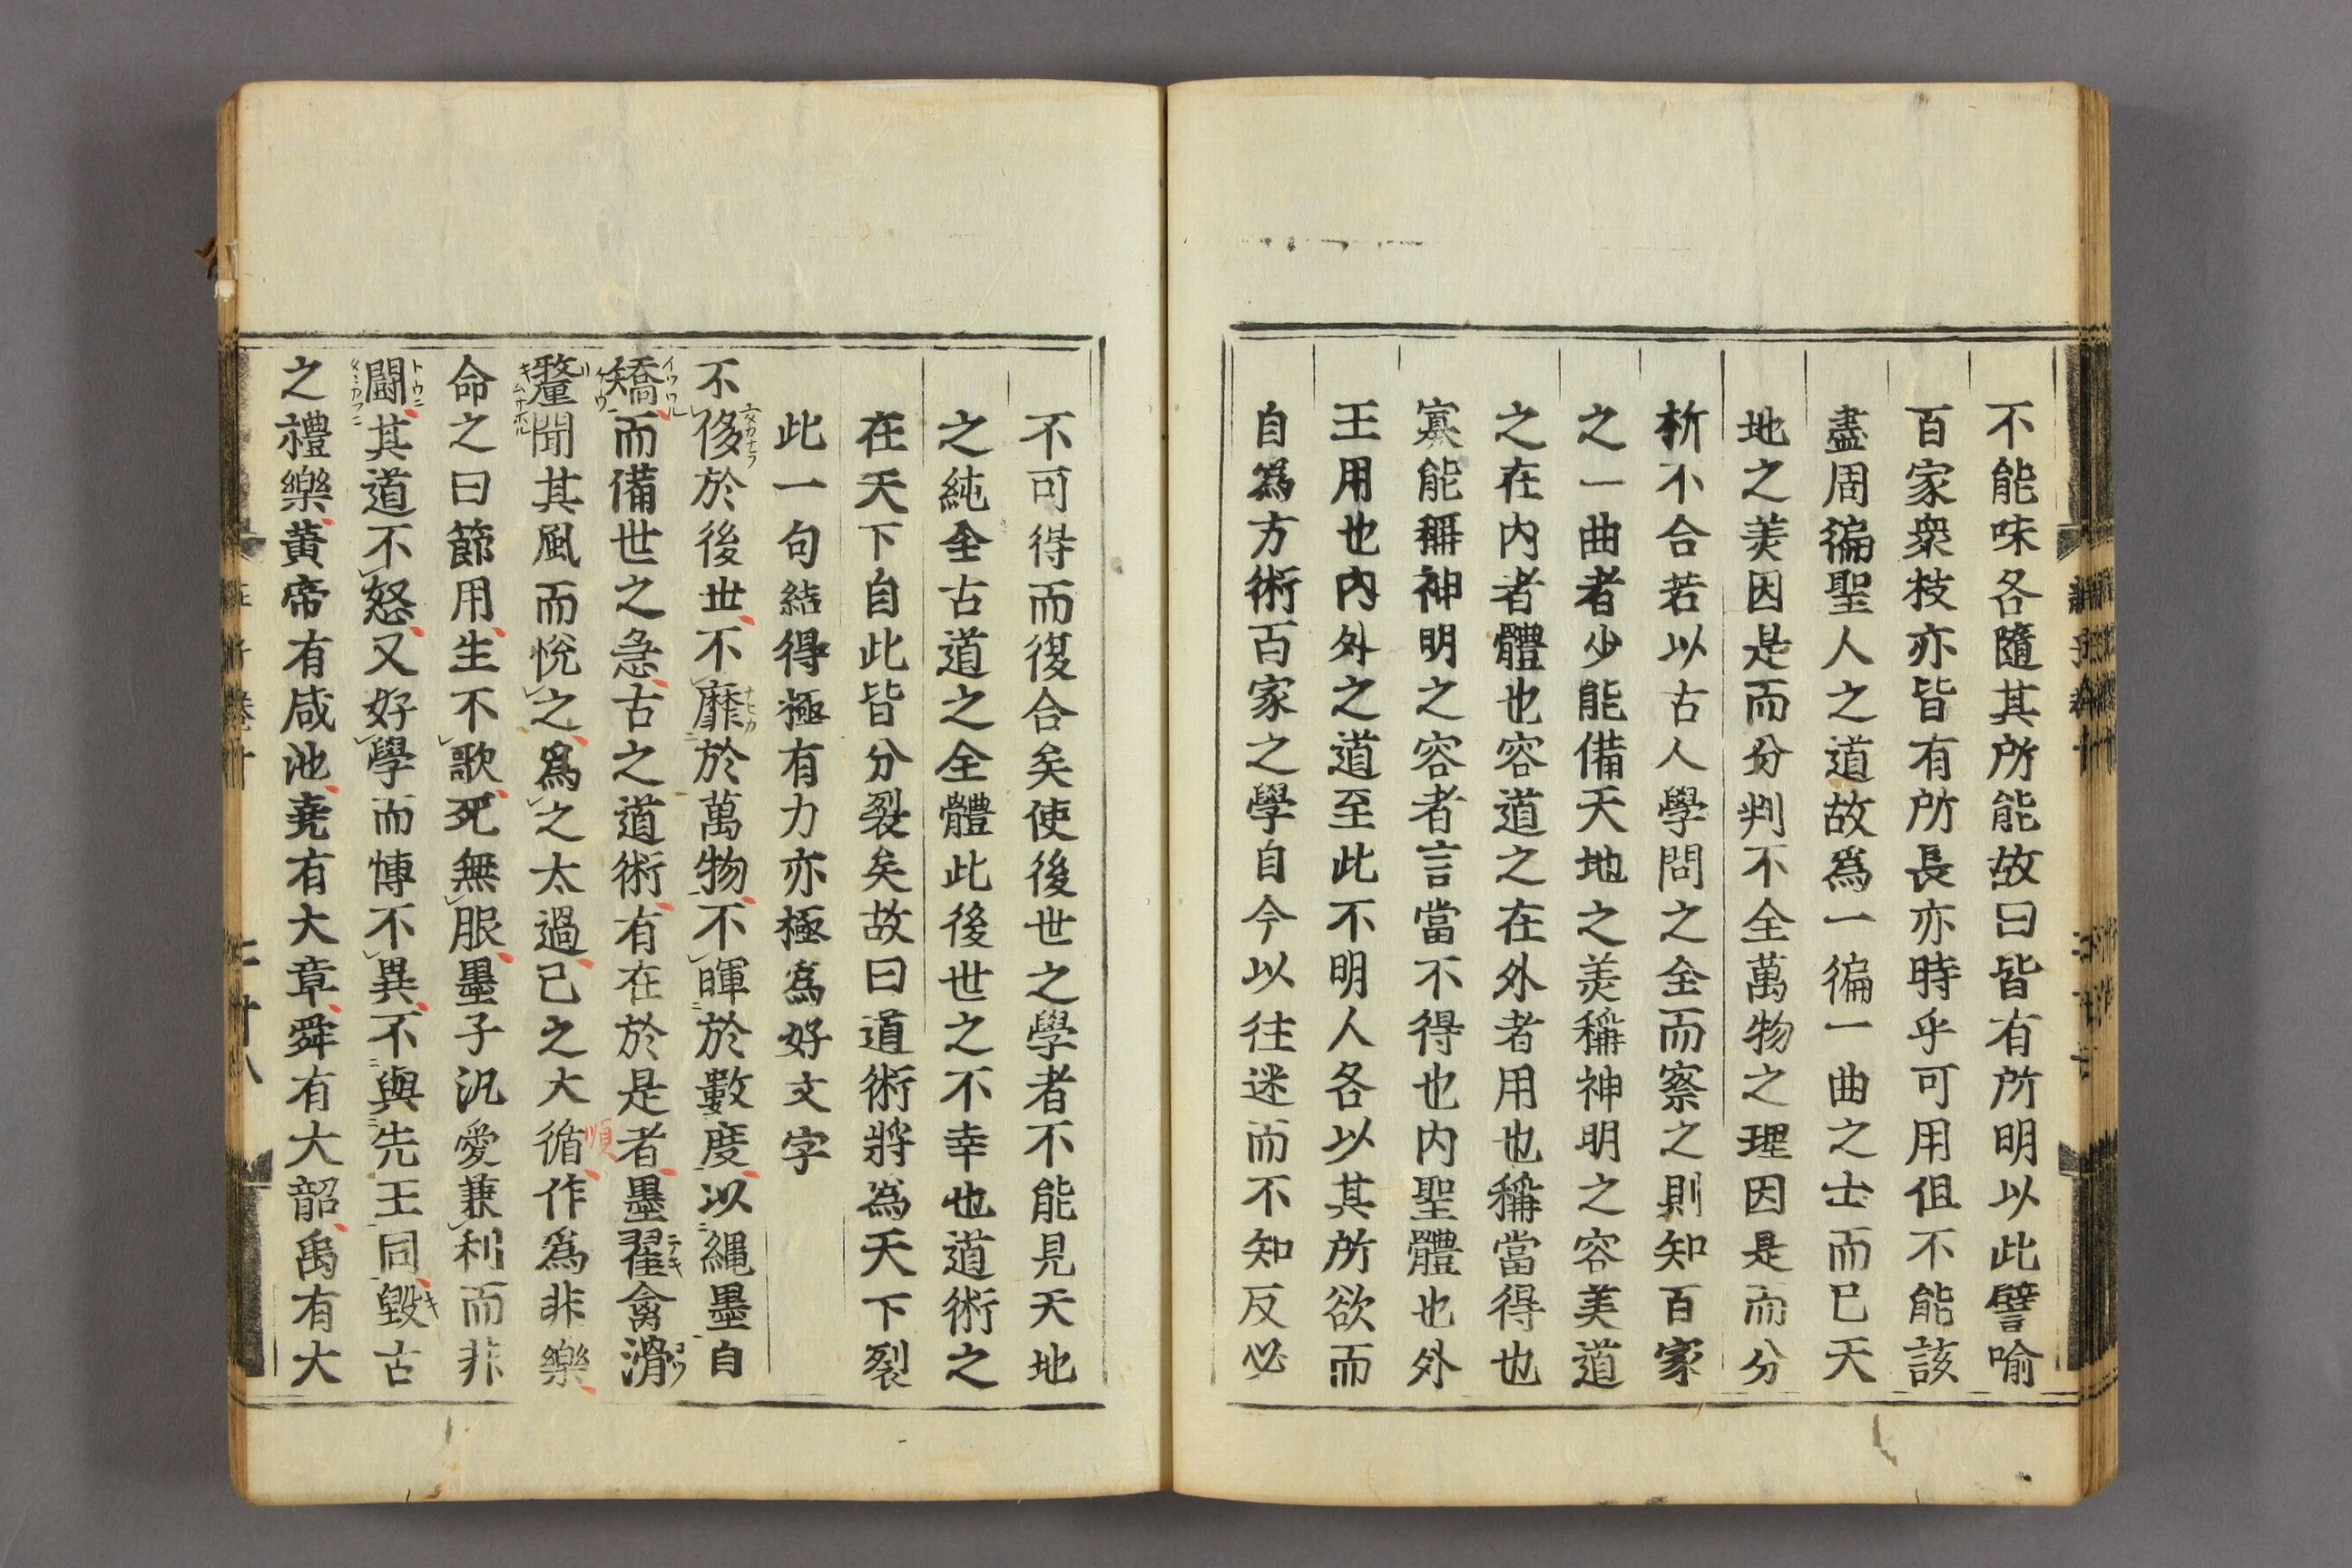 不能味各隨其所能故曰皆有所明以此譬喻
百家衆枝亦皆有所長亦時乎可用但不能該
盡周徧聖人之道故爲一徧一曲之士而已天
地之美因是而分判不全萬物之理因是而分
析不合若以古人學問之全而察之則知百家
之一曲者少能備天地之美稱神明之容美道
之在内者體也容道之在外者用也稱當得也
寡能稱神明之容者言當不得也内聖體也外
王用也内外之道至此不明人各以其所欲而
自爲方術百家之學自今以往迷而不知反必
不可得而復合矣使後世之學者不能見天地
之純全古道之全體此後世之不幸也道術之
在天下自此皆分裂矣故曰道術將爲天下裂
此一句結得極有力亦極爲好文字
不侈於後世不靡於萬物不暉於數度以縄墨自
矯而備世之急古之道術有在於是者墨翟禽滑
釐聞其風而悅之爲之太過已之大循作爲非樂
命之曰節用生不歌死無服墨子汎愛兼利而非
鬪其道不怒又好學而博不異不與先王同毀古
之禮樂黄帝有咸池堯有大章舜有大韶禹有大